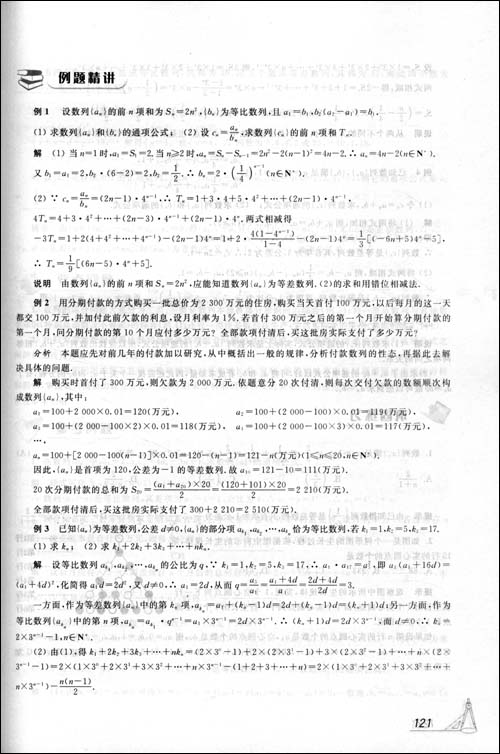 例题精讲
例1 设数列{aₙ}的前n项和为Sₙ=2n²,{bₙ}为等比数列,且a₁=b₁,b₂(a₂-a₁)=b₁.
(1) 求数列{aₙ}和{bₙ}的通项公式; (2) 设cₙ=aₙ/bₙ,求数列{cₙ}的前n项和Tₙ.
解 (1) 当n=1时,a₁=S₁=2,当n≥2时,aₙ=Sₙ-Sₙ₋₁=2n²-2(n-1)²=4n-2,∴aₙ=4n-2(n∈N*).
又b₁=a₁=2,b₂·(6-2)=2,b₂=1/2,∴bₙ=2·(1/4)ⁿ⁻¹(n∈N*).
(2) ∵cₙ=aₙ/bₙ=(2n-1)·4ⁿ⁻¹,∴Tₙ=1+3·4+5·4²+…+(2n-1)·4ⁿ⁻¹.
4Tₙ=4+3·4²+…+(2n-3)·4ⁿ⁻¹+(2n-1)·4ⁿ,两式相减得
-3Tₙ=1+2(4+4²+…+4ⁿ⁻¹)-(2n-1)4ⁿ=1+2·4(1-4ⁿ⁻¹)/(1-4)-(2n-1)4ⁿ=1/3[(-6n+5)4ⁿ-5],
∴Tₙ=1/9[(6n-5)·4ⁿ+5].
说明 由数列{aₙ}的前n项和Sₙ=2n²,应能知道数列{aₙ}为等差数列.(2)的求和用错位相减法.
例2 用分期付款的方式购买一批总价为2 300万元的住房,购买当天首付100万元,以后每月的这一天
都交100万元,并加付此前欠款的利息,设月利率为1%.若首付300万元之后的第一个月开始算分期付款的
第一个月,问分期付款的第10个月应付多少万元?全部款项付清后,买这批房实际支付了多少万元?
分析 本题应先对前几年的付款加以研究,从中概括出一般的规律,分析付款数列的性态,再据此去解
决具体的问题.
解 购买时首付了300万元,则欠款为2 000万元,依题意分20次付清,则每次交付欠款的数额顺次构
成数列{aₙ},其中:
a₁=100+2 000×0.01=120(万元), a₂=100+(2 000-100)×0.01=119(万元),
a₃=100+(2 000-100×2)×0.01=118(万元), a₄=100+(2 000-100×3)×0.01=117(万元),
…,
aₙ=100+[2 000-100(n-1)]×0.01=120-(n-1)=121-n(万元)(1≤n≤20,n∈N*).
因此,{aₙ}是首项为120,公差为-1的等差数列.故a₁₀=121-10=111(万元).
20次分期付款的总和为S₂₀=(a₁+a₂₀)×20/2=(120+101)×20/2=2 210(万元).
全部款项付清后,买这批房实际支付了300+2 210=2 510(万元).
例3 已知{aₙ}为等差数列,公差d≠0,{aₙ}的部分项aₖ₁,aₖ₂,…,aₖₙ恰为等比数列,若k₁=1,k₂=5,k₃=17.
(1) 求kₙ; (2) 求k₁+2k₂+3k₃+…+nkₙ.
解 设等比数列aₖ₁,aₖ₂,…,aₖₙ的公比为q,∵k₁=1,k₂=5,k₃=17,∴a₁·a₁₇=a₅²,即a₁(a₁+16d)=
(a₁+4d)²,化简得a₁d=2d²,又d≠0,∴a₁=2d,从而q=a₅/a₁=(a₁+4d)/a₁=(2d+4d)/2d=3.
一方面,作为等差数列{aₙ}中的第kₙ项,aₖₙ=a₁+(kₙ-1)d=2d+(kₙ-1)d=(kₙ+1)d;另一方面,作为
等比数列{aₖₙ}中的第n项,aₖₙ=aₖ₁·qⁿ⁻¹=a₁×3ⁿ⁻¹=2d×3ⁿ⁻¹,∴(kₙ+1)d=2d×3ⁿ⁻¹,而d≠0,∴kₙ=
2×3ⁿ⁻¹-1,n∈N*.
(2) 由(1),得k₁+2k₂+3k₃+…+nkₙ=(2×3⁰-1)+2×(2×3¹-1)+3×(2×3²-1)+…+n×(2×
3ⁿ⁻¹-1)=2×(1×3⁰+2×3¹+3×3²+…+n×3ⁿ⁻¹)-(1+2+3+…+n)=2×(1×3⁰+2×3¹+3×3²+…+
n×3ⁿ⁻¹)-n(n-1)/2.
121